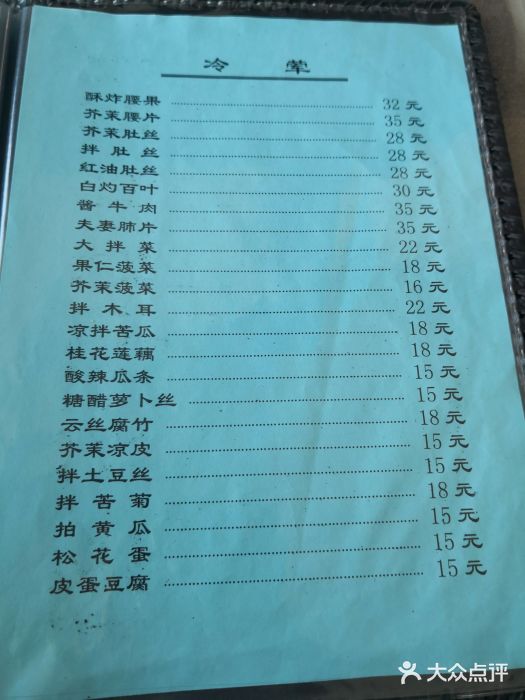 冷荤
酥炸腰果 32元
芥茉腰片 35元
芥茉肚丝 28元
拌肚丝 28元
红油肚丝 28元
白灼百叶 30元
酱牛肉 35元
夫妻肺片 35元
大拌菜 22元
果仁菠菜 18元
芥茉菠菜 16元
拌木耳 22元
凉拌苦瓜 18元
桂花莲藕 18元
酸辣瓜条 15元
糖醋萝卜丝 15元
云丝腐竹 18元
芥茉凉皮 15元
拌土豆丝 15元
拌苦菊 18元
拍黄瓜 15元
松花蛋 15元
皮蛋豆腐 15元
大众点评